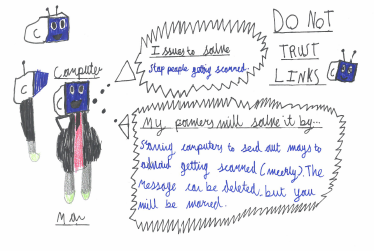 C
Computer
C
C
Man
Issues to solve
Stop people getting scammed.
DO NOT
TRUST
LINKS
C
My powers will solve it by...
computers to send out ways to
getting scammed The
message can be deleted, but you
will be warned.